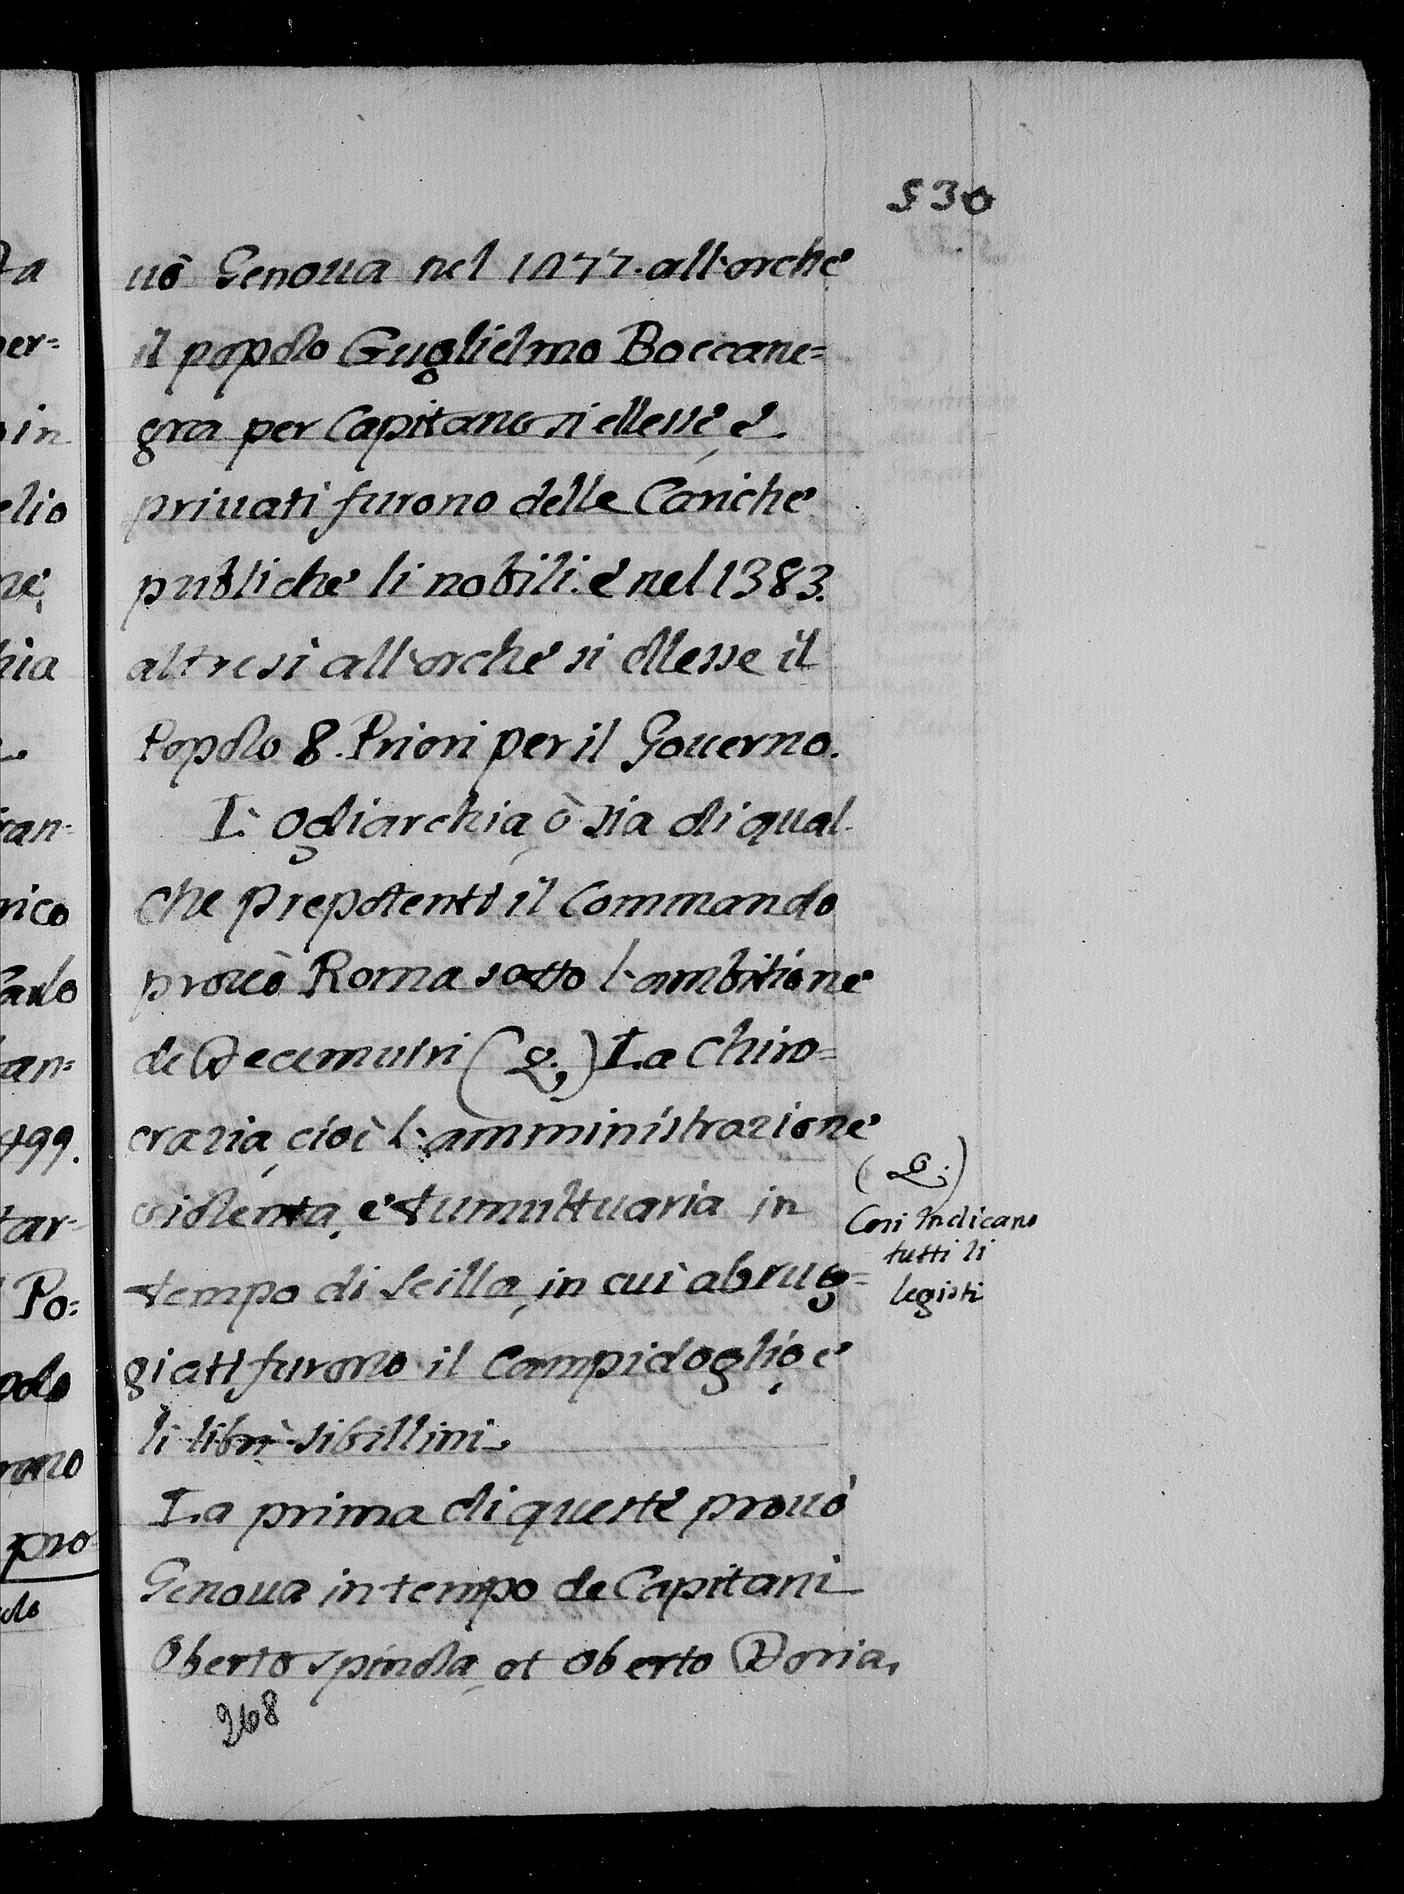 530
uò Genoua nel 1277. all'orche
il popolo Guglielmo Boccane=
gra per Capitano si ellesse, e
priuati furono delle Cariche
publiche li nobili. e nel 1383.
altresi all'orche si ellesse il
Popolo 8. Priori per il Gouerno.
L'Ogliarchia, ò sia di qual
che prepotenti il Commando
prouò Roma sotto l'ambitione
de Decemuiri (Q;) La Chiro=
crazia, cioè l'amministrazione
uiolenta, e tumultuaria in
tempo di Scilla, in cui abrug=
giati furono il Campidoglio, e
li libri sibillini.
La prima di queste prouò
Genoua in tempo de Capitani
Oberto Spinola, et Oberto Doria,
268
(Q;)
Cosi Indicano
tutti li
legisti
ta
er=
in
elio
ne,
hia
ran=
rico
Carlo
an=
499.
tar-
Po=
olo
rono
pro